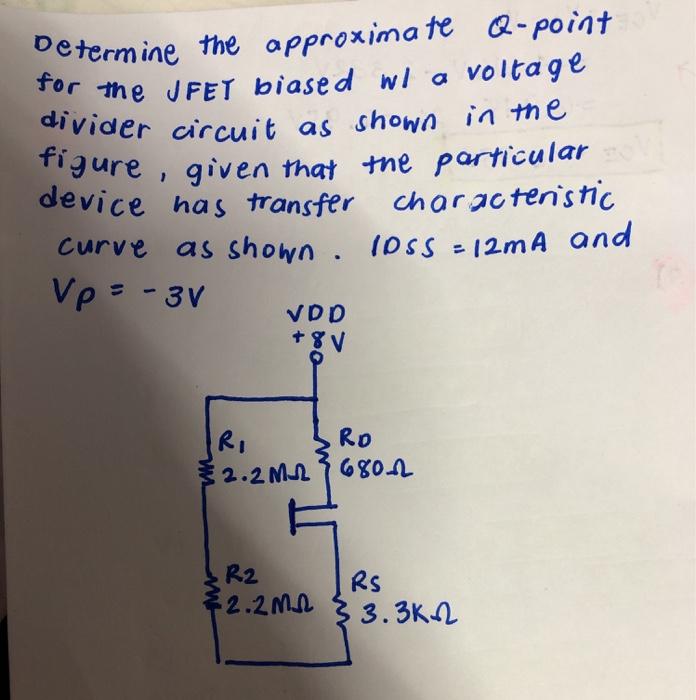 Determine the approximate Q-point
for the JFET biased w/ a voltage
divider circuit as shown in the
figure, given that the particular
device has transfer characteristic
curve as shown. IDSS = 12mA and
Vp = -3V
VDD
+8V
R1
2.2MΩ
RD
680Ω
R2
2.2MΩ
RS
3.3KΩ